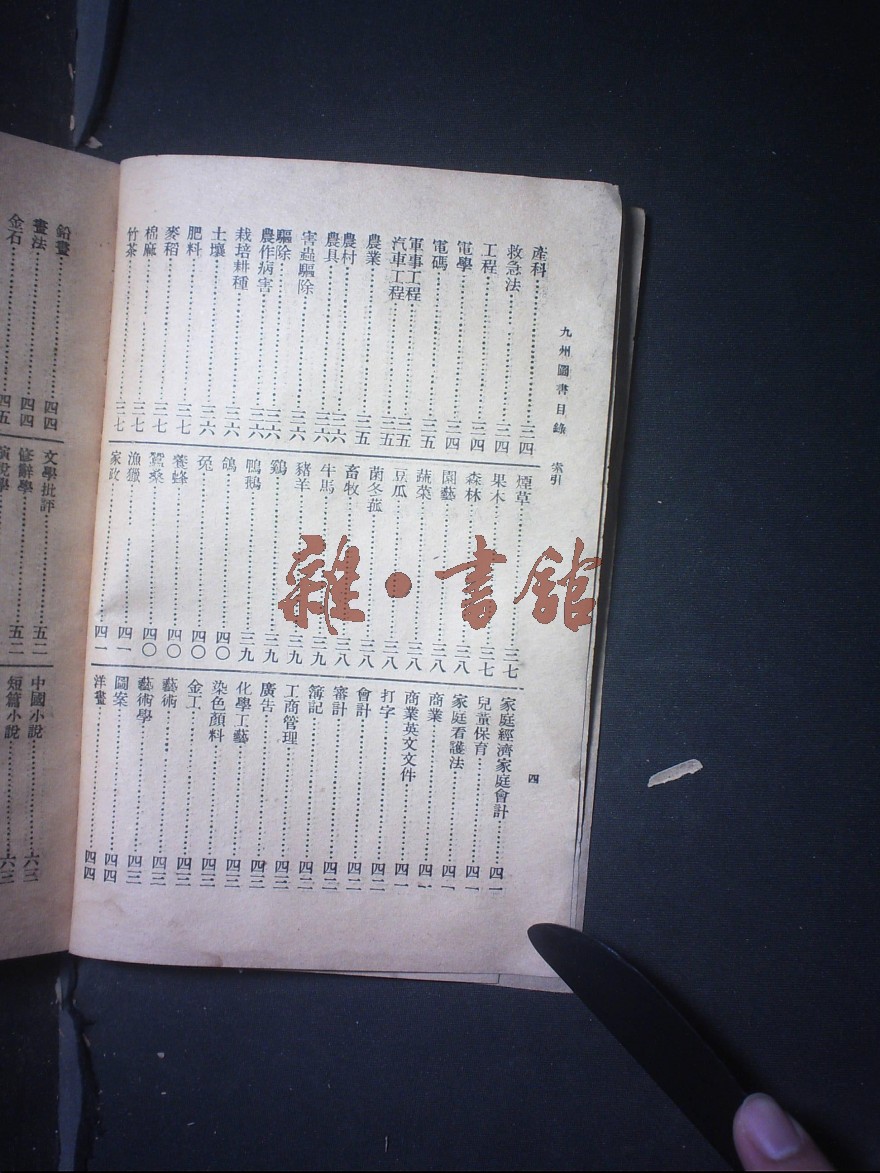 九州圖書目錄 索引
四
產科三四
救急法三四
工程三四
電學三四
電碼三五
軍事工程三五
汽車工程三五
農業三五
農村三六
農具三六
害蟲驅除三六
驅除三六
農作病害三六
栽培耕種三六
土壤三六
肥料三七
麥稻三七
棉麻三七
竹茶三七
煙草三七
果木三七
森林三八
園藝三八
蔬菜三八
豆瓜三八
菌冬菰三八
畜牧三八
牛馬三九
豬羊三九
鷄三九
鴨鵝三九
鴿四〇
兔四〇
養蜂四〇
蠶桑四〇
漁獵四一
家政四一
家庭經濟家庭會計四一
兒童保育四一
家庭看護法四一
商業四一
商業英文文件四一
打字四二
會計四二
審計四二
簿記四二
工商管理四二
廣告四三
化學工藝四三
染色顏料四三
金工四三
藝術四三
藝術學四三
圖案四四
洋畫四四
鉛畫四四
畫法四四
金石四五
文學批評五二
修辭學五二
演說學
中國小說六三
短篇小說六三
雜·書館